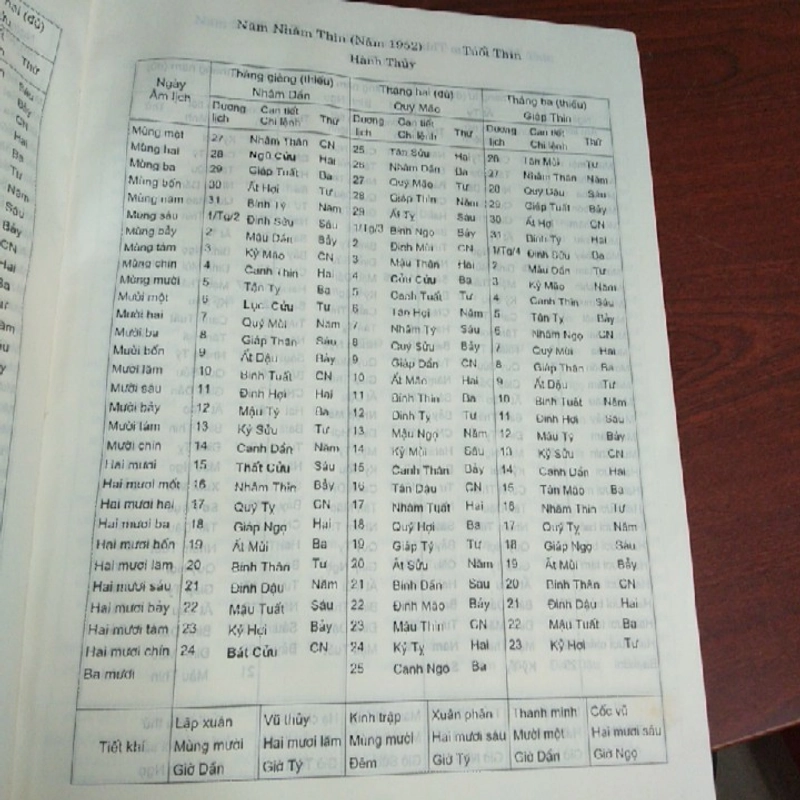 Năm Nhâm Thìn (Năm 1952) Tuổi Thìn
Hành Thủy
Ngày Âm lịch Tháng giêng (thiếu) Nhâm Dần Tháng hai (đủ) Quý Mão Tháng ba (thiếu) Giáp Thìn
Dương lịch Can tiết Chi lệnh Thứ Dương lịch Can tiết Chi lệnh Thứ Dương lịch Can tiết Chi lệnh Thứ
Mùng một 27 Nhâm Thân CN 25 Tân Sửu Hai 26 Tân Mùi Tư
Mùng hai 28 Ngũ Cửu Hai 26 Nhâm Dần Ba 27 Nhâm Thân Năm
Mùng ba 29 Giáp Tuất Ba 27 Quý Mão Tư 28 Quý Dậu Sáu
Mùng bốn 30 Ất Hợi Tư 28 Giáp Thìn Năm 29 Giáp Tuất Bảy
Mùng năm 31 Bính Tý Năm 29 Ất Tỵ Sáu 30 Ất Hợi CN
Mùng sáu 1/Tg/2 Đinh Sửu Sáu 1/Tg/3 Bính Ngọ Bảy 31 Bính Tý Hai
Mùng bảy 2 Mậu Dần Bảy 2 Đinh Mùi CN 1/Tg/4 Đinh Sửu Ba
Mùng tám 3 Kỷ Mão CN 3 Mậu Thân Hai 2 Mậu Dần Tư
Mùng chín 4 Canh Thìn Hai 4 Cửu Cửu Ba 3 Kỷ Mão Năm
Mùng mười 5 Tân Tỵ Ba 5 Canh Tuất Tư 4 Canh Thìn Sáu
Mười một 6 Lục Cửu Tư 6 Tân Hợi Năm 5 Tân Tỵ Bảy
Mười hai 7 Quý Mùi Năm 7 Nhâm Tý Sáu 6 Nhâm Ngọ CN
Mười ba 8 Giáp Thân Sáu 8 Quý Sửu Bảy 7 Quý Mùi Hai
Mười bốn 9 Ất Dậu Bảy 9 Giáp Dần CN 8 Giáp Thân Ba
Mười lăm 10 Bính Tuất CN 10 Ất Mão Hai 9 Ất Dậu Tư
Mười sáu 11 Đinh Hợi Hai 11 Bính Thìn Ba 10 Bính Tuất Năm
Mười bảy 12 Mậu Tý Ba 12 Đinh Tỵ Tư 11 Đinh Hợi Sáu
Mười tám 13 Kỷ Sửu Tư 13 Mậu Ngọ Năm 12 Mậu Tý Bảy
Mười chín 14 Canh Dần Năm 14 Kỷ Mùi Sáu 13 Kỷ Sửu CN
Hai mươi 15 Thất Cửu Sáu 15 Canh Thân Bảy 14 Canh Dần Hai
Hai mươi mốt 16 Nhâm Thìn Bảy 16 Tân Dậu CN 15 Tân Mão Ba
Hai mươi hai 17 Quý Tỵ CN 17 Nhâm Tuất Hai 16 Nhâm Thìn Tư
Hai mươi ba 18 Giáp Ngọ Hai 18 Quý Hợi Ba 17 Quý Tỵ Năm
Hai mươi bốn 19 Ất Mùi Ba 19 Giáp Tý Tư 18 Giáp Ngọ Sáu
Hai mươi lăm 20 Bính Thân Tư 20 Ất Sửu Năm 19 Ất Mùi Bảy
Hai mươi sáu 21 Đinh Dậu Năm 21 Bính Dần Sáu 20 Bính Thân CN
Hai mươi bảy 22 Mậu Tuất Sáu 22 Đinh Mão Bảy 21 Đinh Dậu Hai
Hai mươi tám 23 Kỷ Hợi Bảy 23 Mậu Thìn CN 22 Mậu Tuất Ba
Hai mươi chín 24 Bát Cửu CN 24 Kỷ Tỵ Hai 23 Kỷ Hợi Tư
Ba mươi 25 Canh Ngọ Ba
Tiết khí
Lập xuân Vũ thủy Kinh trập Xuân phân Thanh minh Cốc vũ
Mùng mười Hai mươi lăm Mùng mười Hai mươi sáu Mười một Hai mươi sáu
Giờ Dần Giờ Tý Đêm Giờ Tý Giờ Dần Giờ Ngọ